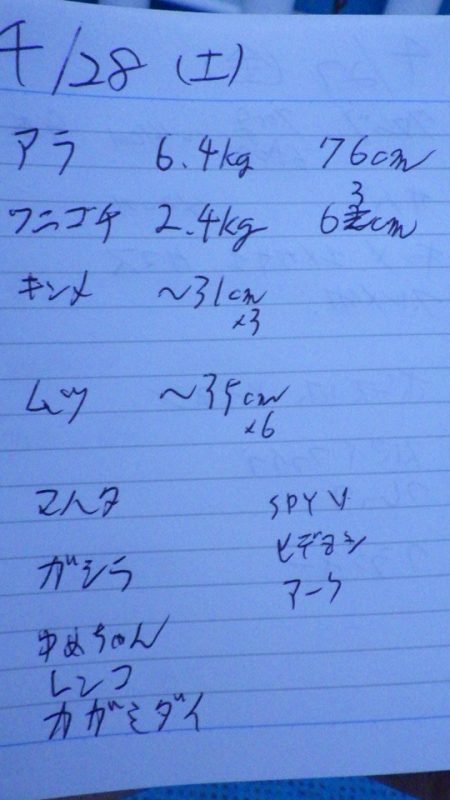 4/28 (土)
アラ 6.4kg 76cm
ワニゴチ 2.4kg 63cm
キンメ ~31cm
×3
ムツ ~35cm
×6
マトダ SPY V
ヒデヨシ
ガシラ アーク
ゆめちゃん
レンコ
カガミダイ